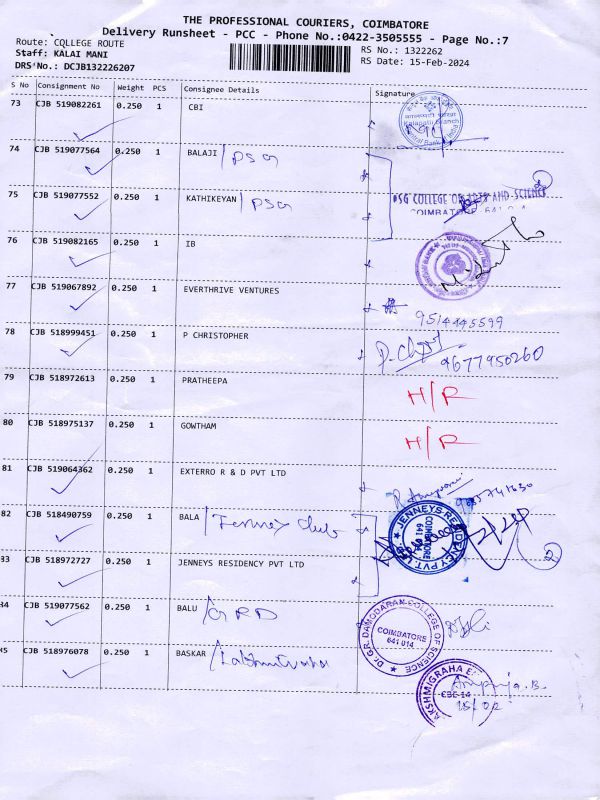 THE PROFESSIONAL COURIERS, COIMBATORE
Delivery Runsheet - PCC - Phone No.:0422-3505555 - Page No.:7
Route: COLLEGE ROUTE
RS No.: 1322262
Staff: KALAI MANI
RS Date: 15-Feb-2024
DRS No.: DCJB132226207
S No Consignment No Weight PCS Consignee Details Signature
73 CJB 519082261 0.250 1 CBI
Kalapatti Branch
74 CJB 519077564 0.250 1 BALAJI / PSG
75 CJB 519077552 0.250 1 KATHIKEYAN / PSG
PSG COLLEGE OF ARTS AND SCIENCE
COIMBATORE 641 014
76 CJB 519082165 0.250 1 IB
77 CJB 519067892 0.250 1 EVERTHRIVE VENTURES
9514445599
78 CJB 518999451 0.250 1 P CHRISTOPHER
9677950260
79 CJB 518972613 0.250 1 PRATHEEPA H/R
80 CJB 518975137 0.250 1 GOWTHAM H/R
81 CJB 519064362 0.250 1 EXTERRO R & D PVT LTD
82 CJB 518490759 0.250 1 BALA / Jenney Club
JENNEYS RESIDENCY PVT. LTD.
COIMBATORE
641 014
83 CJB 518972727 0.250 1 JENNEYS RESIDENCY PVT LTD
84 CJB 519077562 0.250 1 BALU / GRD
Dr. G.R. DAMODARAN COLLEGE OF SCIENCE
COIMBATORE
641 014
85 CJB 518976078 0.250 1 BASKAR
CBE-14
Anupriya.B.
15/02